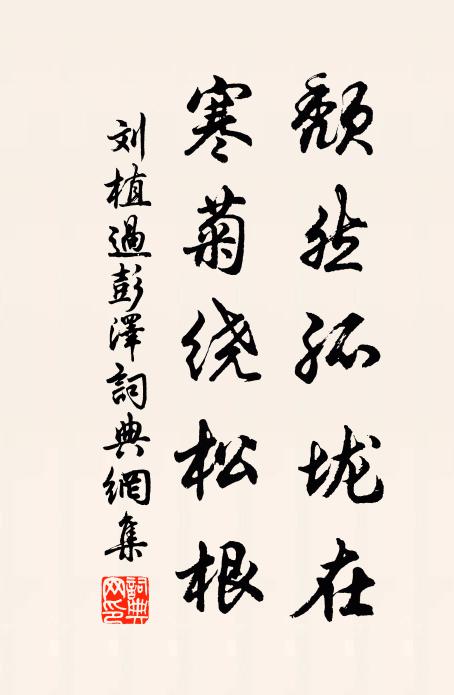 颓然孤垅在
寒菊绕松根
刘植過彭澤詞典網集
詞典网印